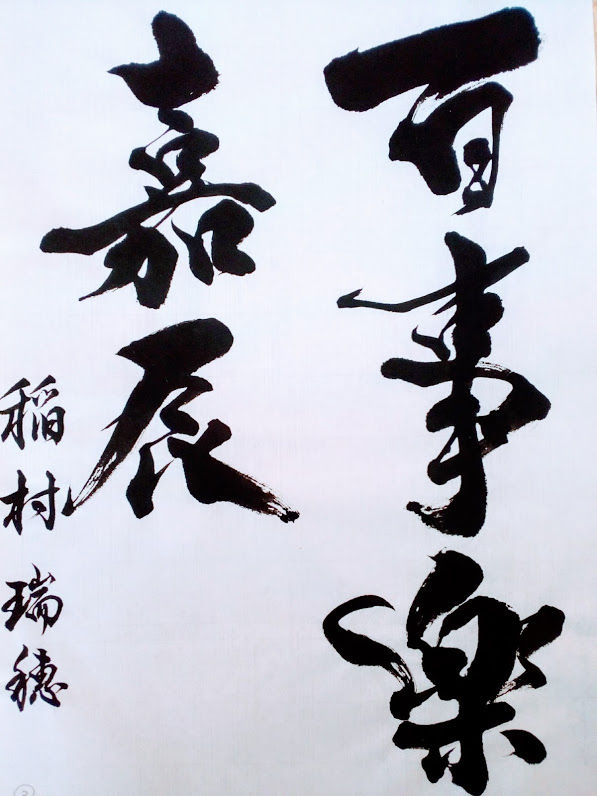 百事樂
嘉辰
稲村瑞穂